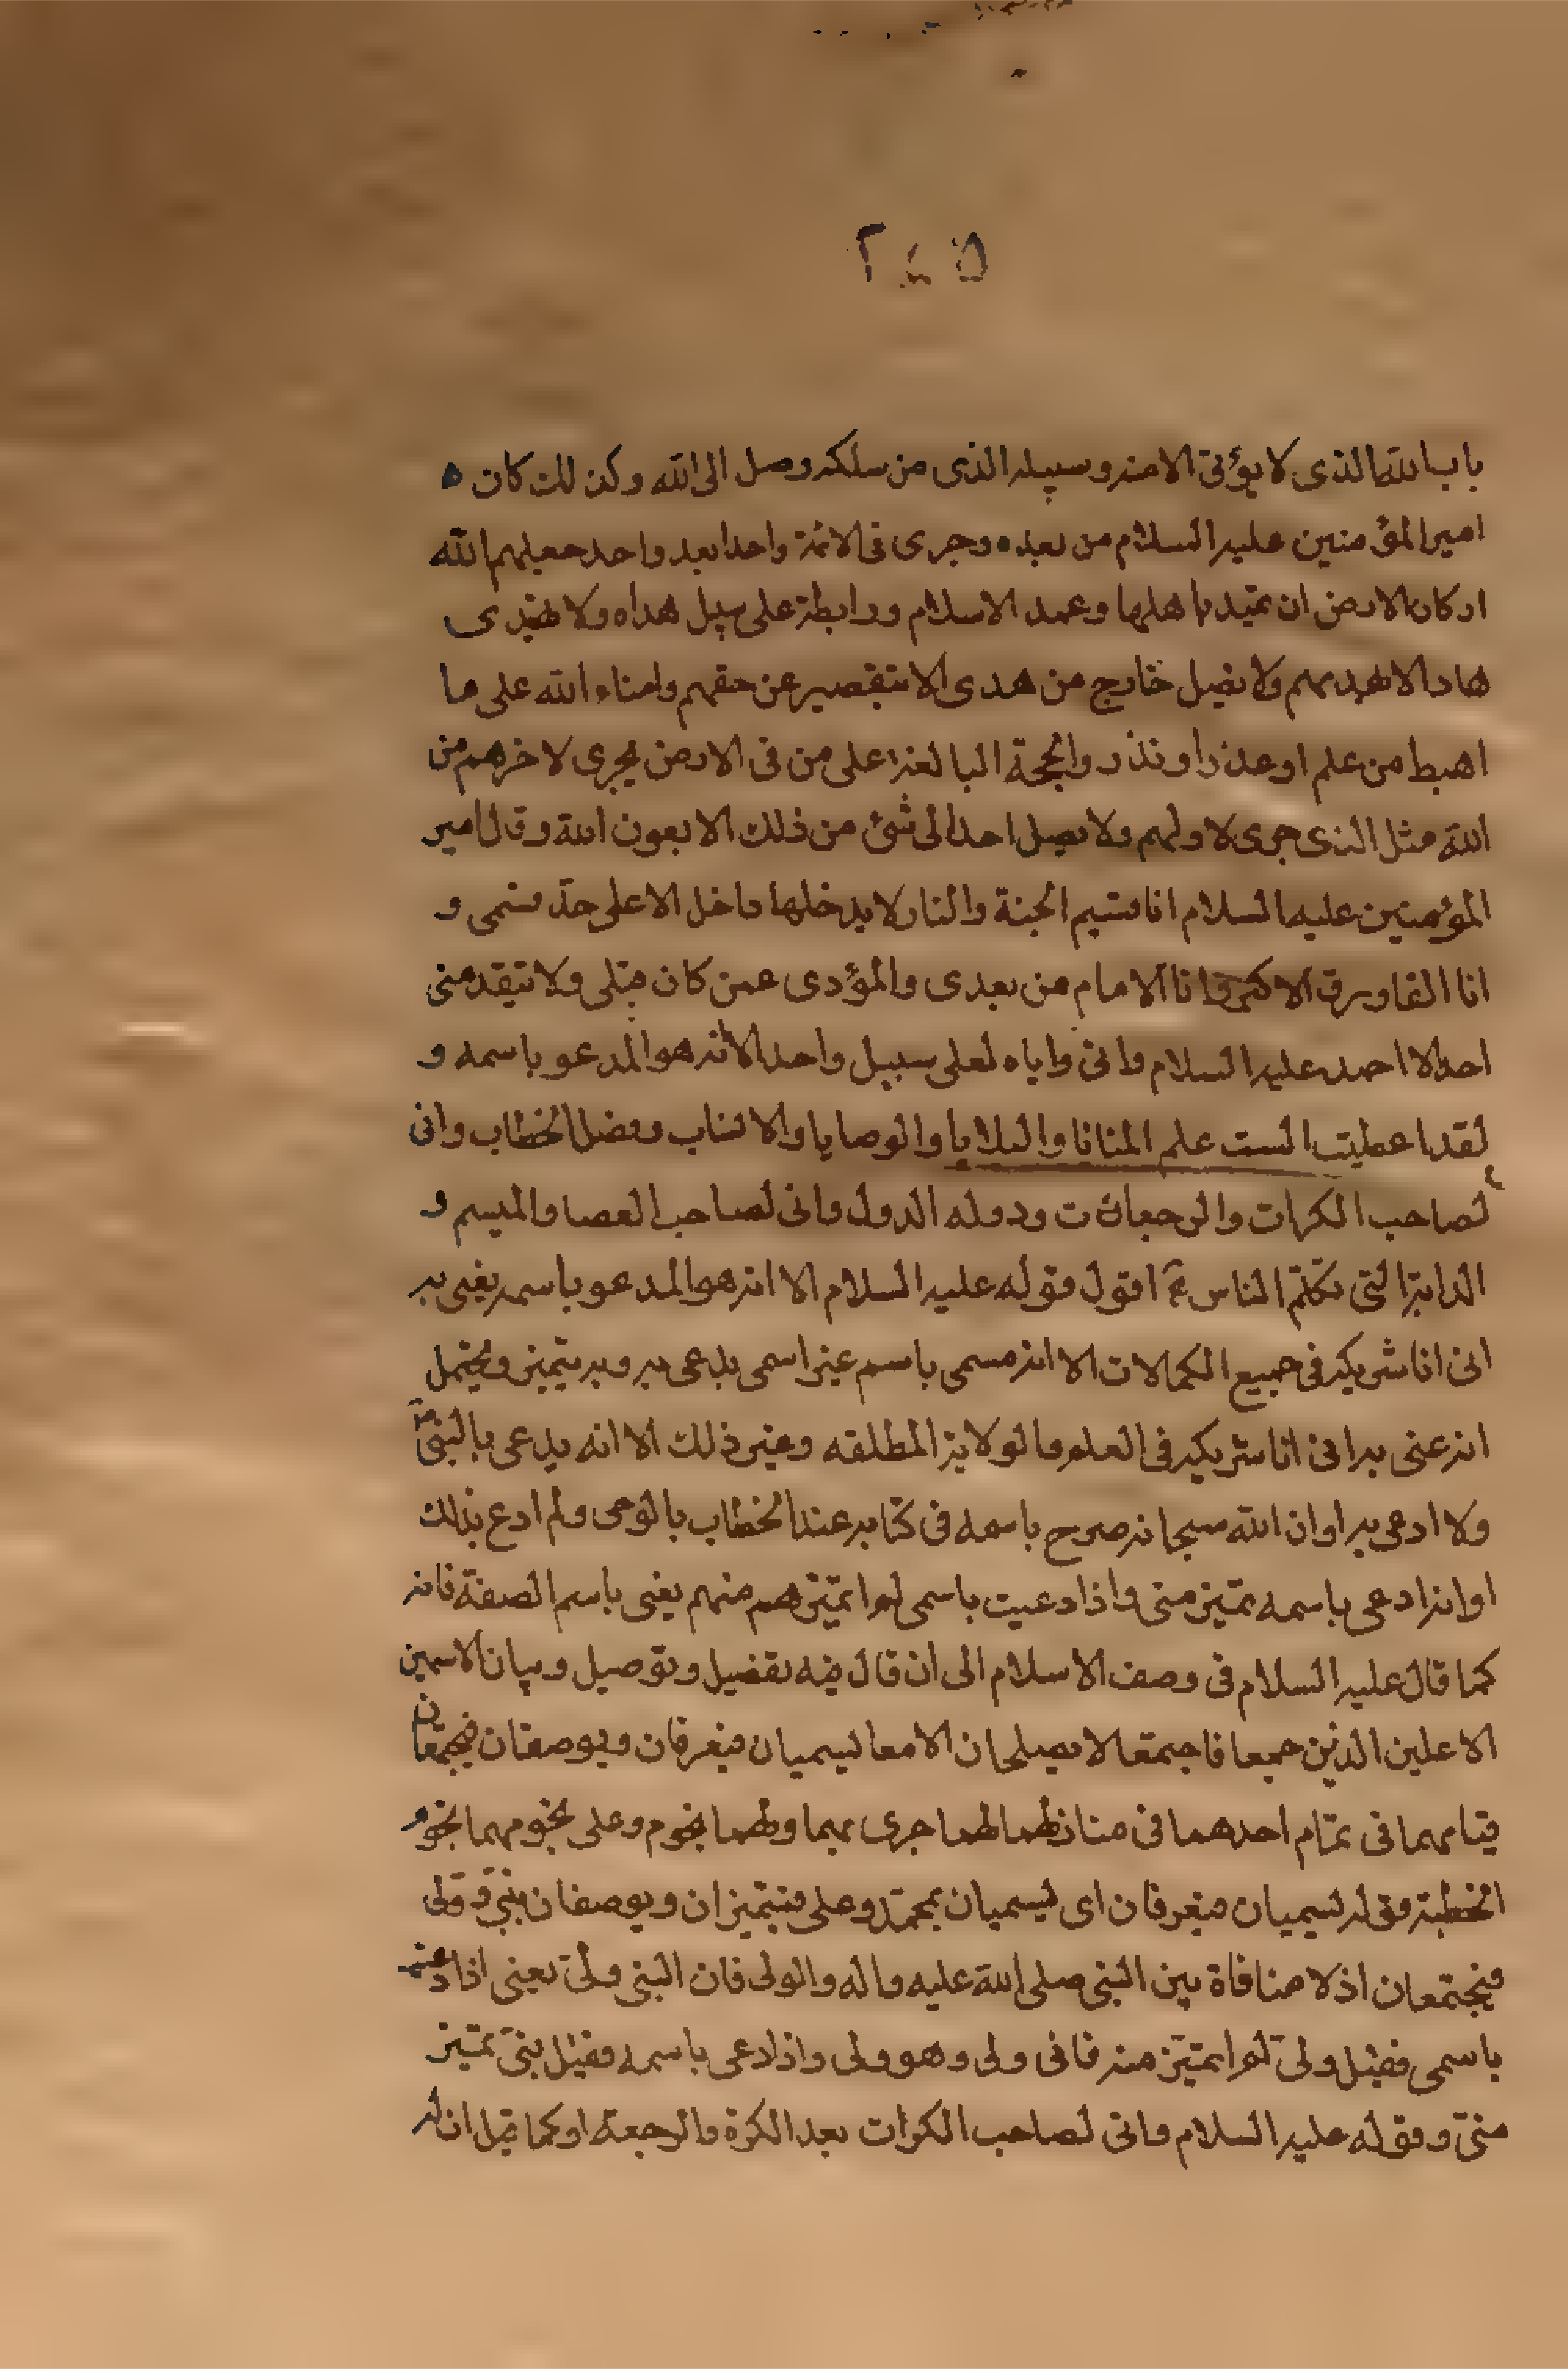 ٢٤٥
باب الله الذى لا يؤتى الا منه وسبيله الذى من سلكه وصل الى الله وكذلك كان ه
امير المؤمنين عليه السلام من بعده وجرى فى الائمة واحدا بعد واحد جعلهم الله
اركان الارض ان تميد باهلها وعمد الاسلام ورابطة على سبيل هداه ولا يهتدى
هاد الا بهديهم ولا يضل خارج من هدى الا بتقصير عن حقهم وامناء الله على ما
اهبط من علم او عذر او نذر والحجة البالغة على من فى الارض يجرى لاخرهم من
الله مثل الذى جرى لاولهم ولا يصل احد الى شئ من ذلك الا بعون الله وقال امير
المؤمنين عليه السلام انا قسيم الجنة والنار لا يدخلها داخل الا على حد قسمى و
انا الفاروق الاكبر وانا الامام من بعدى والمؤدى عمن كان قبلى ولا يتقدمنى
احد الا احمد عليه السلام وانى واياه لعلى سبيل واحد الا انه هو المدعو باسمه و
لقد اعطيت الست علم المنايا والبلايا والوصايا والانساب وفصل الخطاب وانى
لصاحب الكرات والرجعات ودوله الدول وانى لصاحب العصا والميسم و
الدابة التى تكلم الناس اقول قوله عليه السلام الا انه هو المدعو باسمه يعنى به
انى انا شريكه فى جميع الكمالات الا انه مسمى باسم غير اسمى يدعى به وبه يتميز ويحتمل
انه عنى به انى انا شريكه فى العلم والولاية المطلقه وغير ذلك الا انه يدعى بالنبى
ولا ادعى به او ان الله سبحانه صرح باسمه فى كتابه عند الخطاب بالوحى ولم ادع بذلك
او انه ادعى باسمه تميز منى واذا دعيت باسمى لم اتميز منهم يعنى باسم الصفة فانه
كما قال عليه السلام فى وصف الاسلام الى ان قال فيه تفضيل وتوصيل وبيان الاسمين
الاعلين الذين جمعا فاجتمعا لا يصلحان الا معا يسميان فيعرفان ويوصفان فيجتمعان
قيامهما فى تمام احدهما فى منازلهما لهما جرى بهما ولهما نجوم وعلى نجومهما نجوم
الخطبة فقوله يسميان فيعرفان اى يسميان بمحمد وعلى فيتميزان ويوصفان بنبى وولى
فيجتمعان اذ لا منافاة بين النبى صلى الله عليه واله والولى فان النبى ولى يعنى اذا دعيت
باسمى فقيل ولى لم اتميز منه فانى ولى وهو ولى واذا دعى باسمه فقيل نبى تميز
منى وقوله عليه السلام وانى لصاحب الكرات بعد الكرة والرجعة او كما قيل ان له